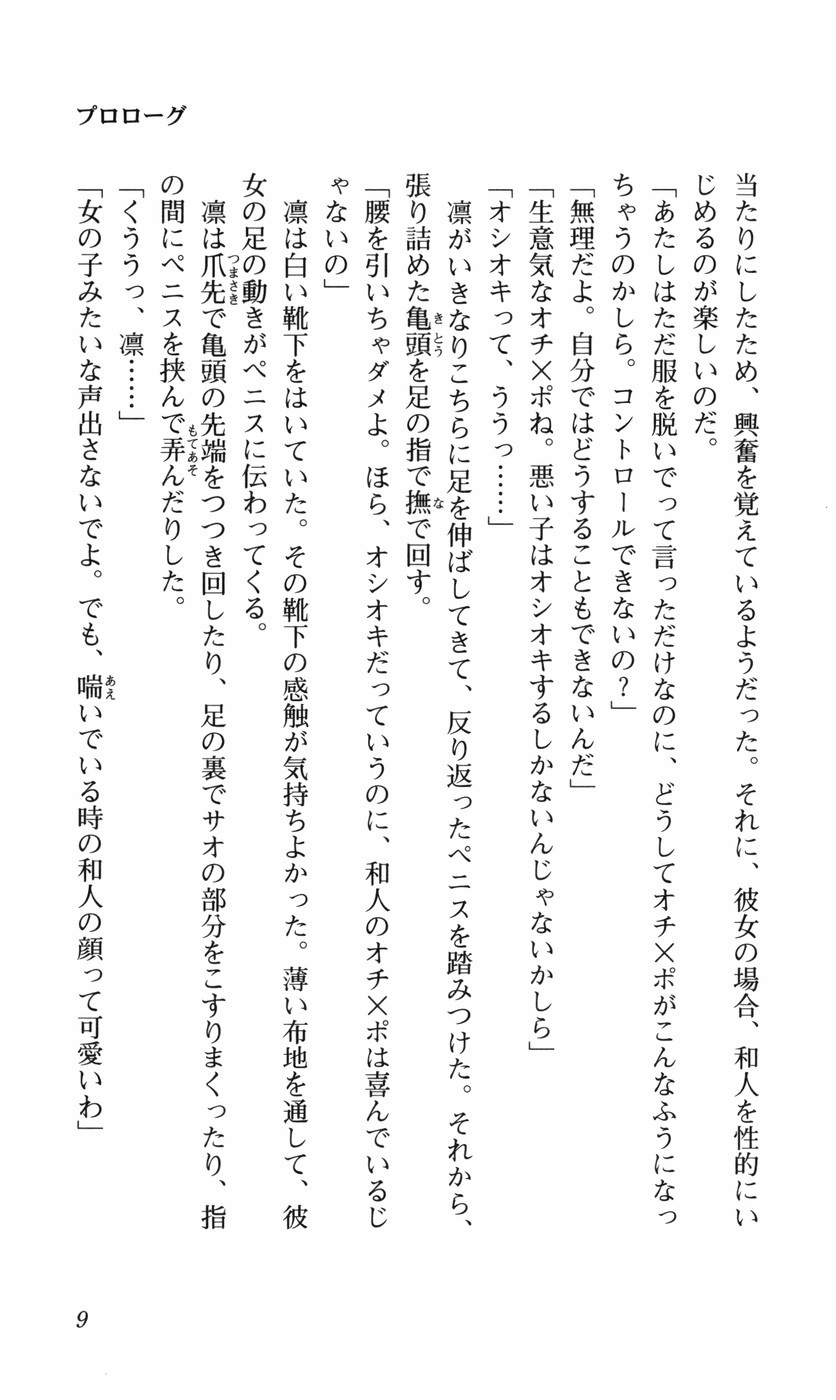 プロローグ
当たりにしたため、興奮を覚えているようだった。それに、彼女の場合、和人を性的にい
じめるのが楽しいのだ。
「あたしはただ服を脱いでって言っただけなのに、どうしてオチ×ポがこんなふうになっ
ちゃうのかしら。コントロールできないの？」
「無理だよ。自分ではどうすることもできないんだ」
「生意気なオチ×ポね。悪い子はオシオキするしかないんじゃないかしら」
「オシオキって、ううっ……」
凛がいきなりこちらに足を伸ばしてきて、反り返ったペニスを踏みつけた。それから、
張り詰めた亀頭を足の指で撫で回す。
「腰を引いちゃダメよ。ほら、オシオキだっていうのに、和人のオチ×ポは喜んでいるじ
ゃないの」
凛は白い靴下をはいていた。その靴下の感触が気持ちよかった。薄い布地を通して、彼
女の足の動きがペニスに伝わってくる。
凛は爪先で亀頭の先端をつつき回したり、足の裏でサオの部分をこすりまくったり、指
の間にペニスを挟んで弄んだりした。
「くううっ、凛……」
「女の子みたいな声出さないでよ。でも、喘いでいる時の和人の顔って可愛いわ」
9